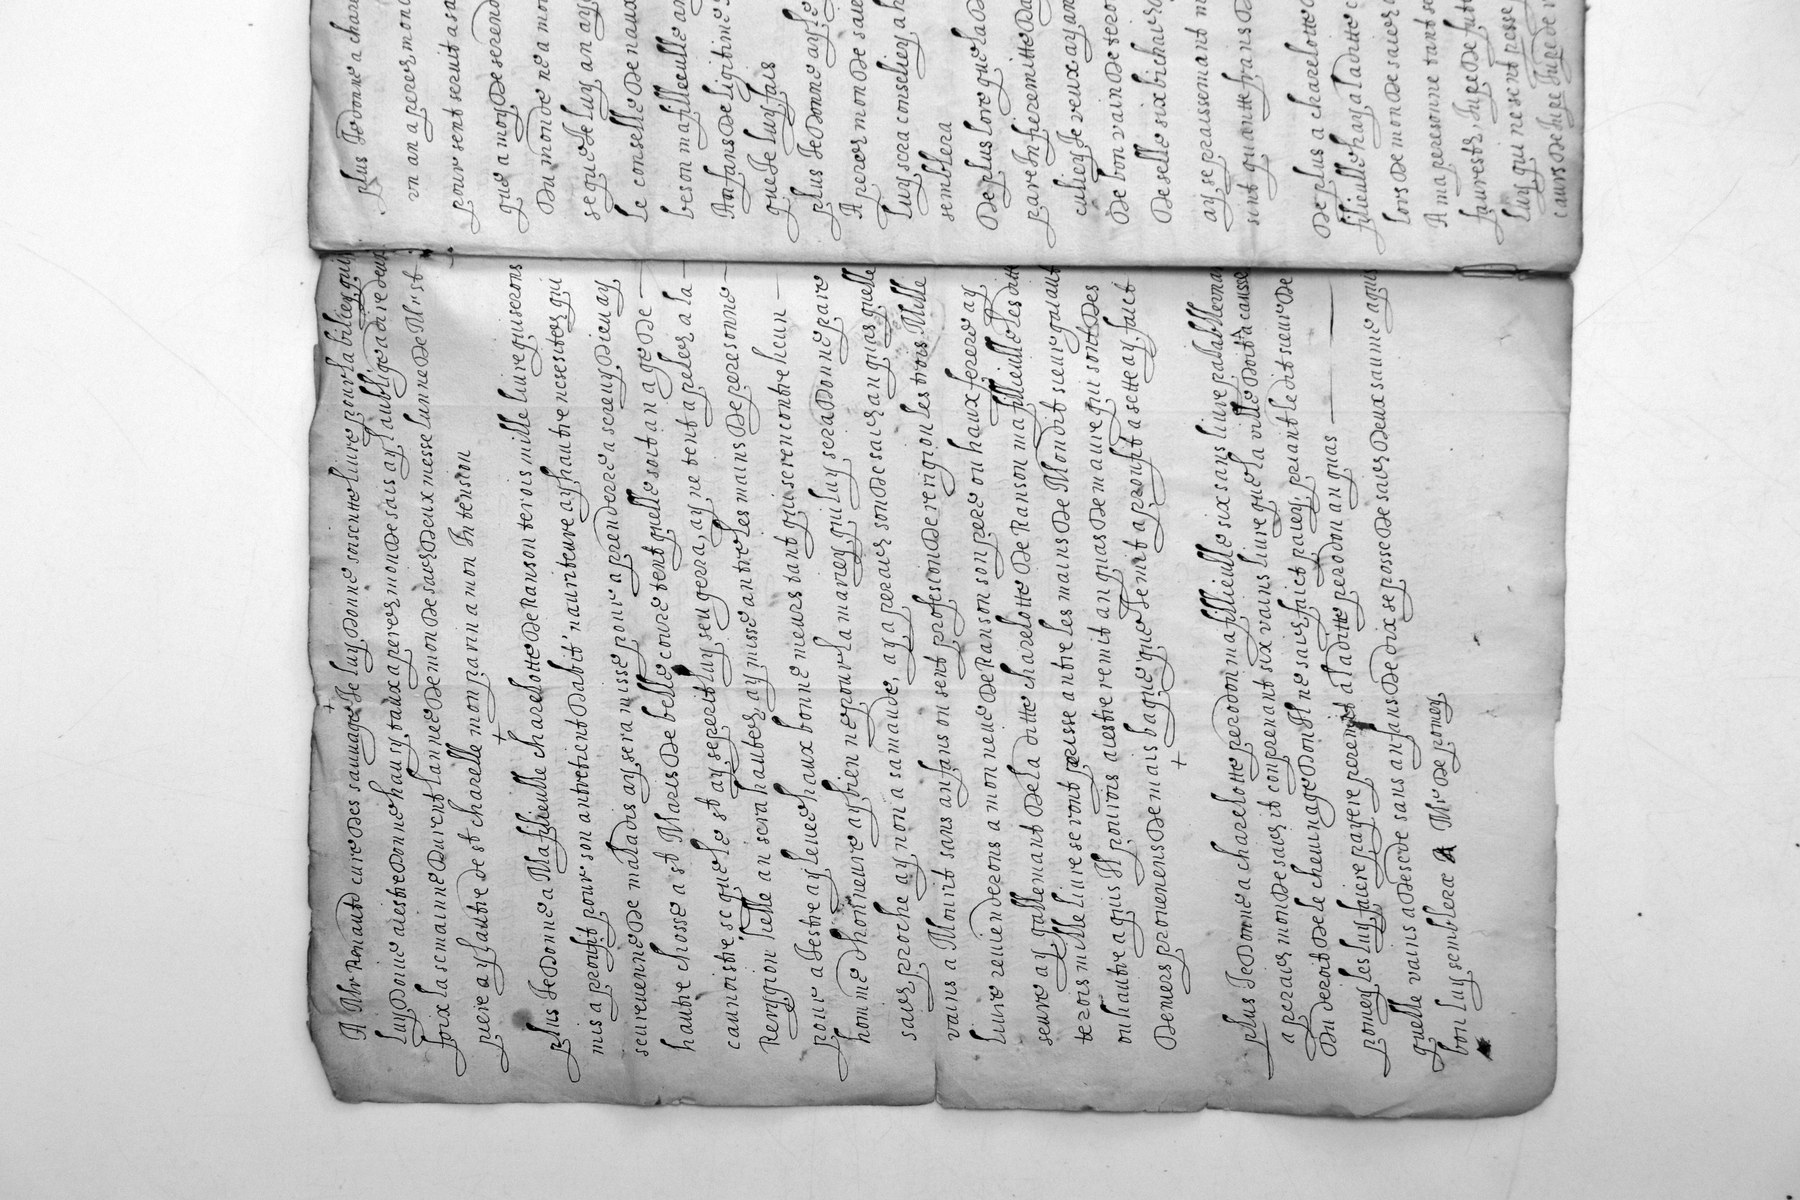 A Mr Renaud cure des sauvage Je luy donne soisentte livre pour la balier qui
luy donne aiestre donne hausy taux aperes mon de sais ay laublige a dire deux
foix la semainne durent lanne de mon desaes deux messe lunne de Mr st
piere ay lautre de st charelle mon paran a mon Intension
plus Je donne a Ma filieulle charelotte de Ranson terois mille livre qui serons
mis a proufit pour son antretient dabit nauriteure ay hautre nesesites qui
seurevenne de maladis ay sera misse pour aprendere a serevy dieu ay
hautre chosse a st Maris de belle coure tent quelle soit an age de
caunoistre se que le st ayseperit luy seugera, ay ne tent apeler a la
Rerigion Jelle an sera hautes, ay misse antre les mains de peresonne
pour aiestre ay levee haux bonne meurs tant qui serencontre heun
homme dhonneure ay bien ne pour la mariey, qui luy sera donne pare
saes proche ay non a sa maude, ay aperaes son desaes an quas quelle
vains a Mourit sans anfans ou sent profesion de rerigion les trois Mille
livre revienderons a mon neveu de Ranson son pere ou haux ferere ay
seure ay gallemant de la ditte charelotte de Ranson ma fillieulle les dit
terois mille livre seront prisse antre les mains de Mondit sieur galant
ou hautre a quis Il pouras aiestre remit an quas de maure qui sont des
deniers provenens de mais bague que Jemit a proufit a sette ay faict
plus Je donne a charelotte peredon ma fillieulle six sans livre palablemant
aperaes mon desaes it conprenant six vains livre que la ville doit a causse
du deroit de le chevinage don Il ne saes faict paiey, priant le dit sieur de
pomey les luy faiere payere peremit a laditte peredon an quas
quelle vains a desede sans anfans de dix se posse de saes deux saume a qui
bon luy semblera A Mr de pomey

plus Je donne a chare
un an aperes mon d
pour sent servit a sa
que a moy de serend
du monde ne a mo
se que de luy an ay
le conselle de naux
beson ma filleulle an
Anfans de ligitime
que de luy fais
plus Je donne ay le
Aperes mon de sae
luy sera consliey a h
semblera
de plus lore que la d
pare Infieremitte da
culiey Je veux ay an
de bon vain de sero
de selle six bichair
ay se praissemant m
sint quantte frans d
de plus a charelotte d
filieulle hray a laditte c
lors de mon de saes
A ma peresonne tant se
faurest, Juge de fut
luy qui ne sent pesse
caurs de Juge Juge de r